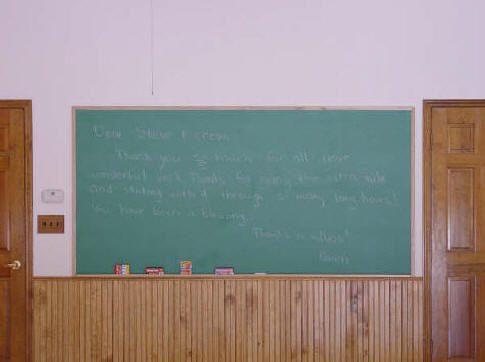 Dear Steve & crew
Thank you so much for all your
wonderful work. Thanks for going the extra mile
and sticking with it through so many long hours!
You have been a blessing.
Thanks a million!